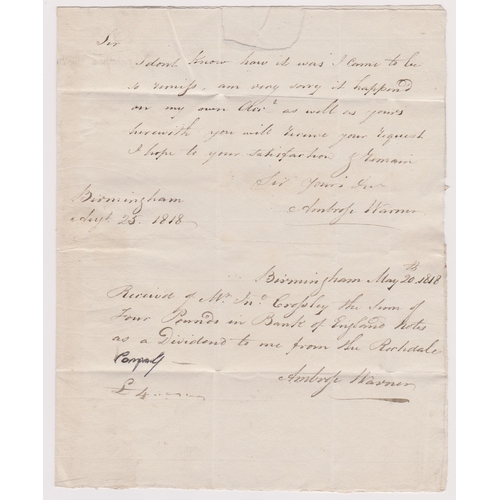 Sir
I dont know how it was I came to be
so remiss, am very sorry it happend
on my own Acct. as well as yours
herewith you will receive your request
I hope to your satisfaction & remain
Sir Yours &c
Ambrose Warner
Birmingham
Sept 25. 1818.
Birmingham May 20th. 1818
Received of Mr. Jno. Crossley the Sum of
Four Pounds in Bank of England Notes
as a Dividend to me from the Rochdale
£4
Ambrose Warner